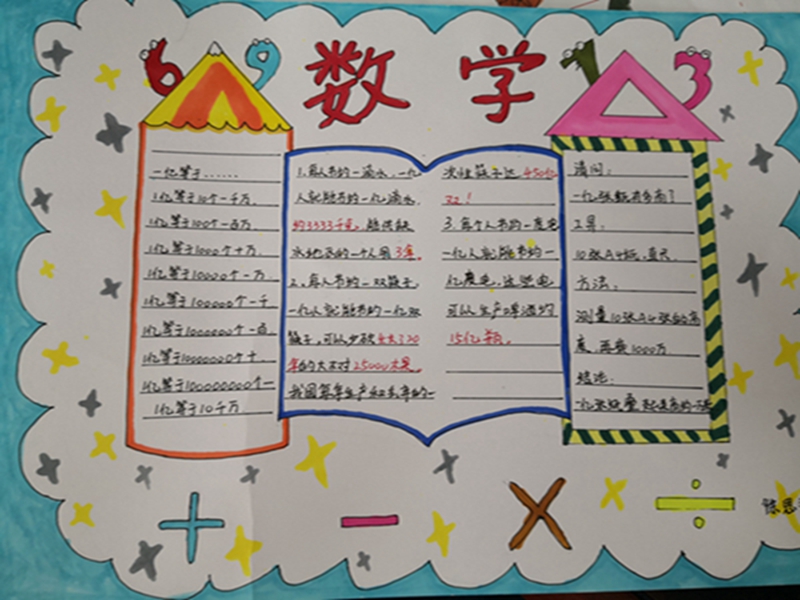 6 9 数 学 7 3
一亿等于……
1亿等于10个一千万
1亿等于100个一百万
1亿等于1000个十万
1亿等于10000个一万
1亿等于100000个一千
1亿等于1000000个一百
1亿等于10000000个十
1亿等于100000000个一
1亿等于10千万
1.每人节约一滴水，一亿
人就能节约一亿滴水，
约3333千克，能供缺
水地区的一个人用3年。
2、每人节约一双筷子，
一亿人就能节约一亿双
筷子，可以少砍
年的大不对25000木果。
我国每年生产和
次性筷子达450亿
双！
3.每个人节约一度电
一亿人就能节约一
亿度电，这些电
可以生产啤酒约
15亿瓶。
请问：
一亿张纸有多高？
工具：
10张A4纸，直尺
方法：
测量10张A4张的高
度，再乘1000万
结论：
一亿张纸
+ − × ÷